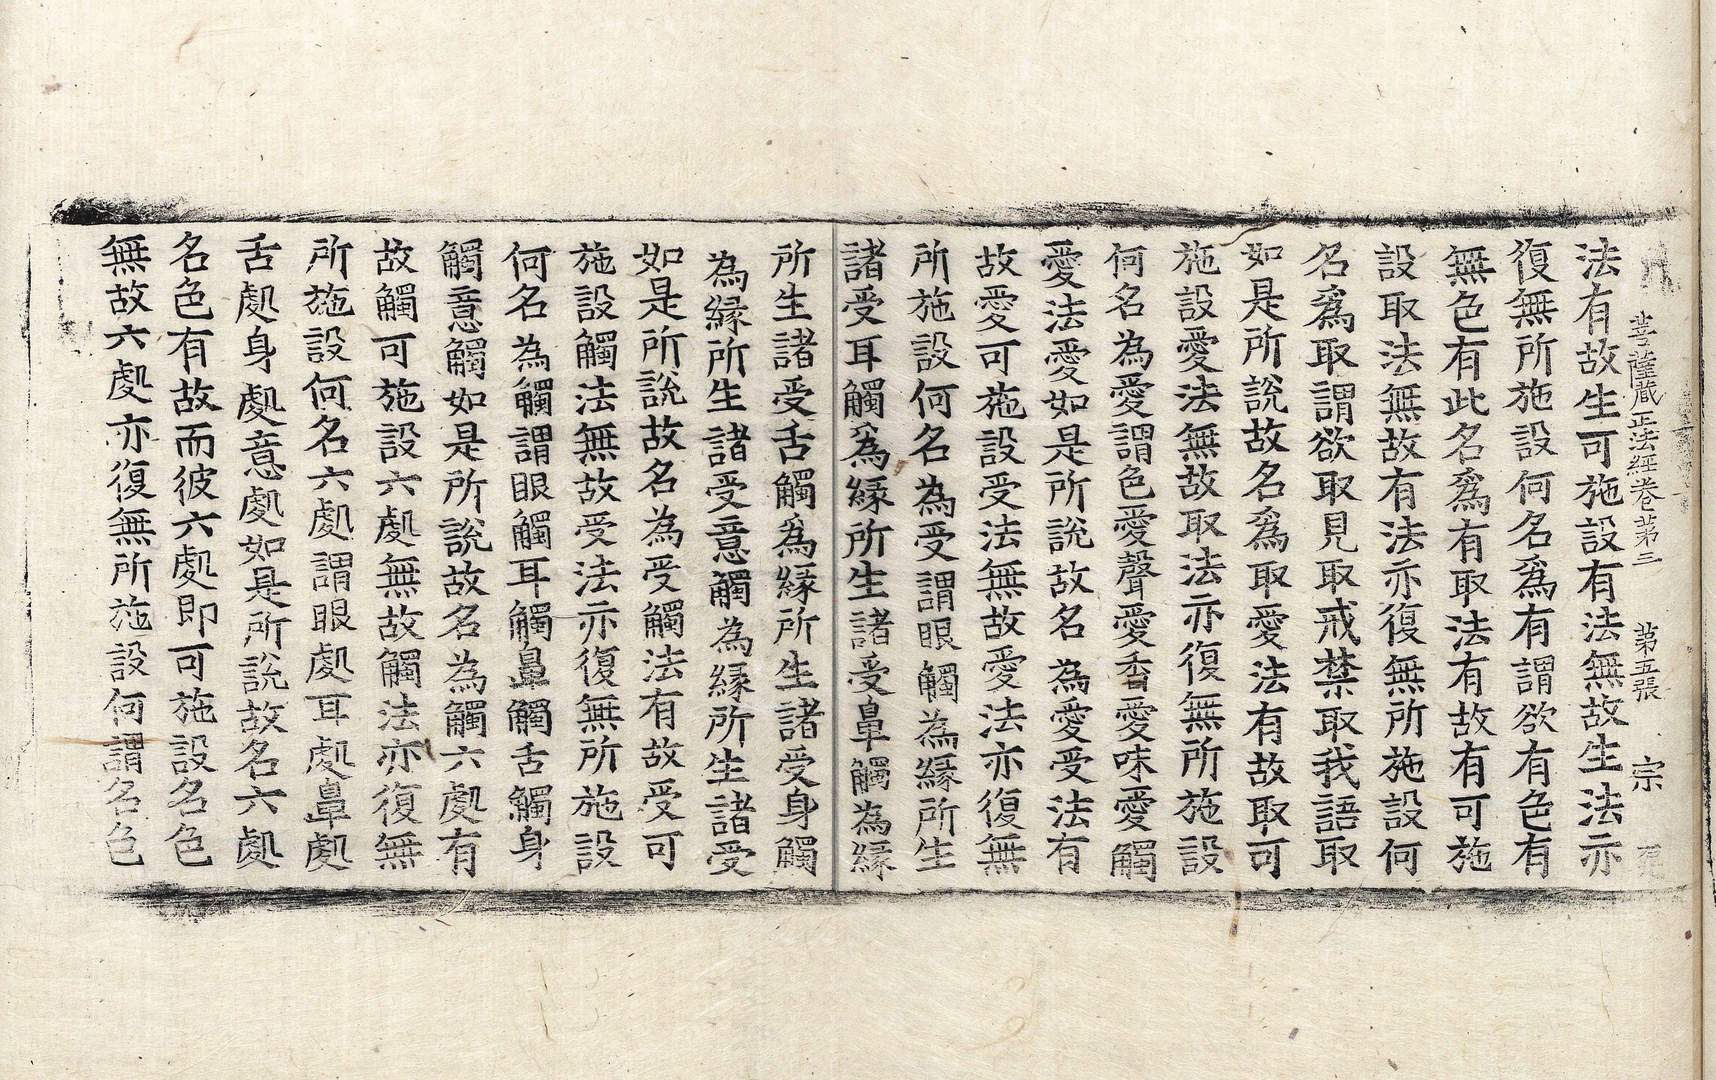 菩薩藏正法經卷第三 第五張 宗
法有故生可施設有法無故生法亦
復無所施設何名爲有謂欲有色有
無色有此名爲有取法有故有可施
設取法無故有法亦復無所施設何
名爲取謂欲取見取戒禁取我語取
如是所說故名爲取愛法有故取可
施設愛法無故取法亦復無所施設
何名為愛謂色愛聲愛香愛味愛觸
愛法愛如是所說故名為愛受法有
故愛可施設受法無故愛法亦復無
所施設何名為受謂眼觸為緣所生
諸受耳觸爲緣所生諸受鼻觸為緣
所生諸受舌觸爲緣所生諸受身觸
為緣所生諸受意觸為緣所生諸受
如是所說故名為受觸法有故受可
施設觸法無故受法亦復無所施設
何名為觸謂眼觸耳觸鼻觸舌觸身
觸意觸如是所說故名為觸六處有
故觸可施設六處無故觸法亦復無
所施設何名六處謂眼處耳處鼻處
舌處身處意處如是所說故名六處
名色有故而彼六處即可施設名色
無故六處亦復無所施設何謂名色